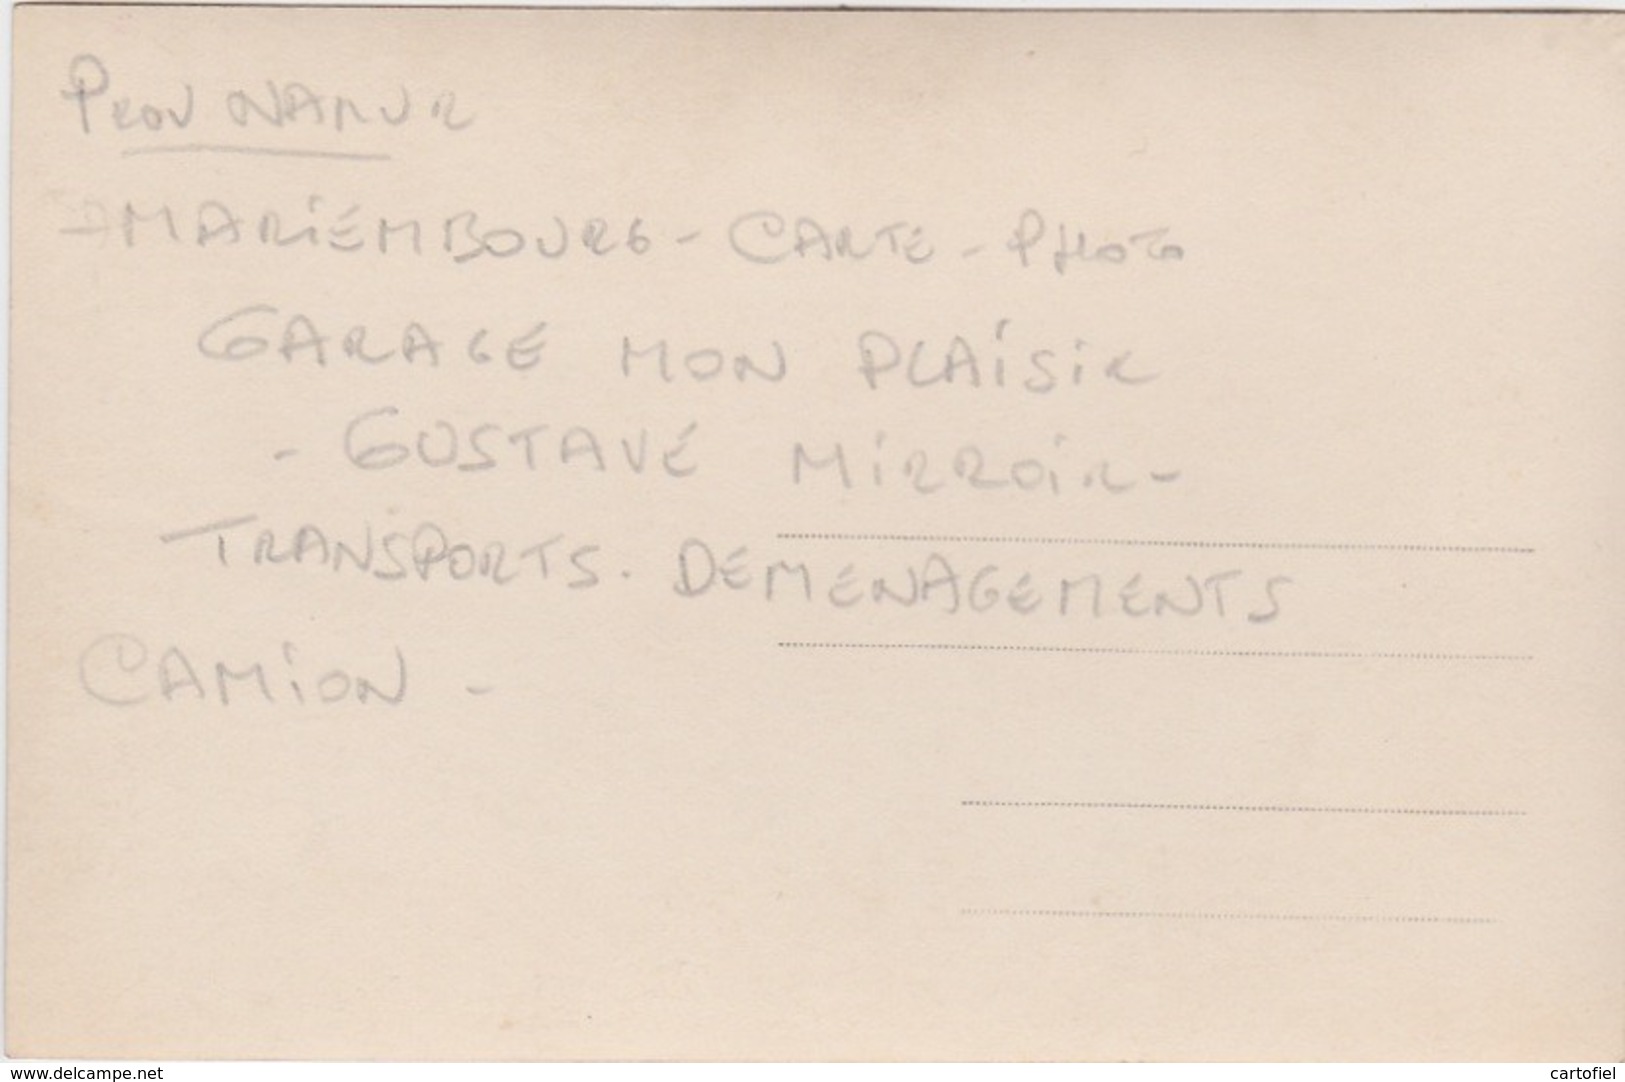 PROV NAMUR
MARIEMBOURG - CARTE - PHOTO
GARAGE MON PLAISIR
- GUSTAVE MIRROIR -
TRANSPORTS. DEMENAGEMENTS
CAMION -
www.delcampe.net
cartofiel